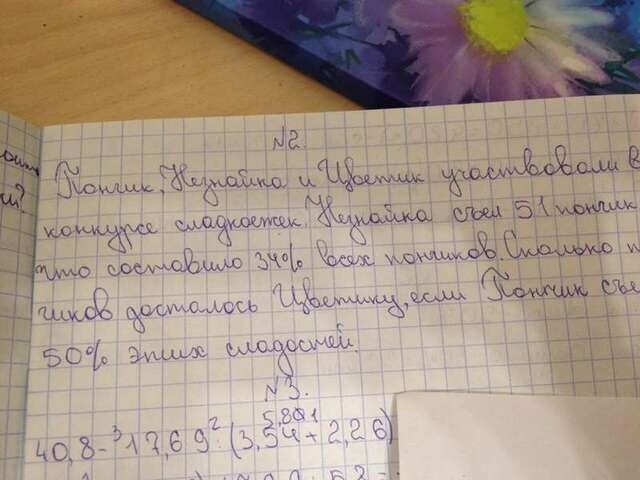 N2.
Пончик, Незнайка и Цветик участвовали в
конкурсе сладкоежек. Незнайка съел 51 пончик
что составило 34% всех пончиков. Сколько п
чиков досталось Цветику, если Пончик съе
50% этих сладостей.
N3.
5,801
40,8-³17,69²:(3,54+2,26)